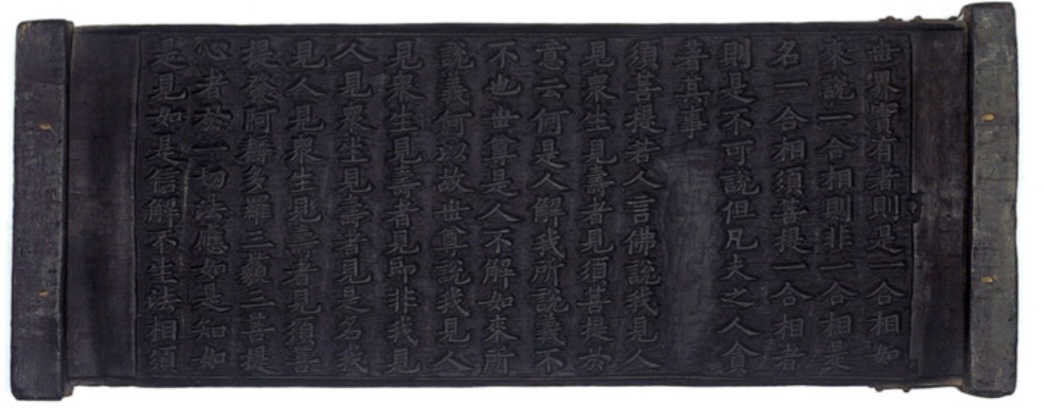 世界實有者則是一合相如
來說一合相則非一合相是
名一合相須菩提一合相者
則是不可說但凡夫之人貪
著其事
須菩提若人言佛說我見人
見衆生見壽者見須菩提於
意云何是人解我所說義不
不也世尊是人不解如來所
說義何以故世尊說我見人
見衆生見壽者見即非我見
人見衆生見壽者見是名我
見人見衆生見壽者見須菩
提發阿耨多羅三藐三菩提
心者於一切法應如是知如
是見如是信解不生法相須